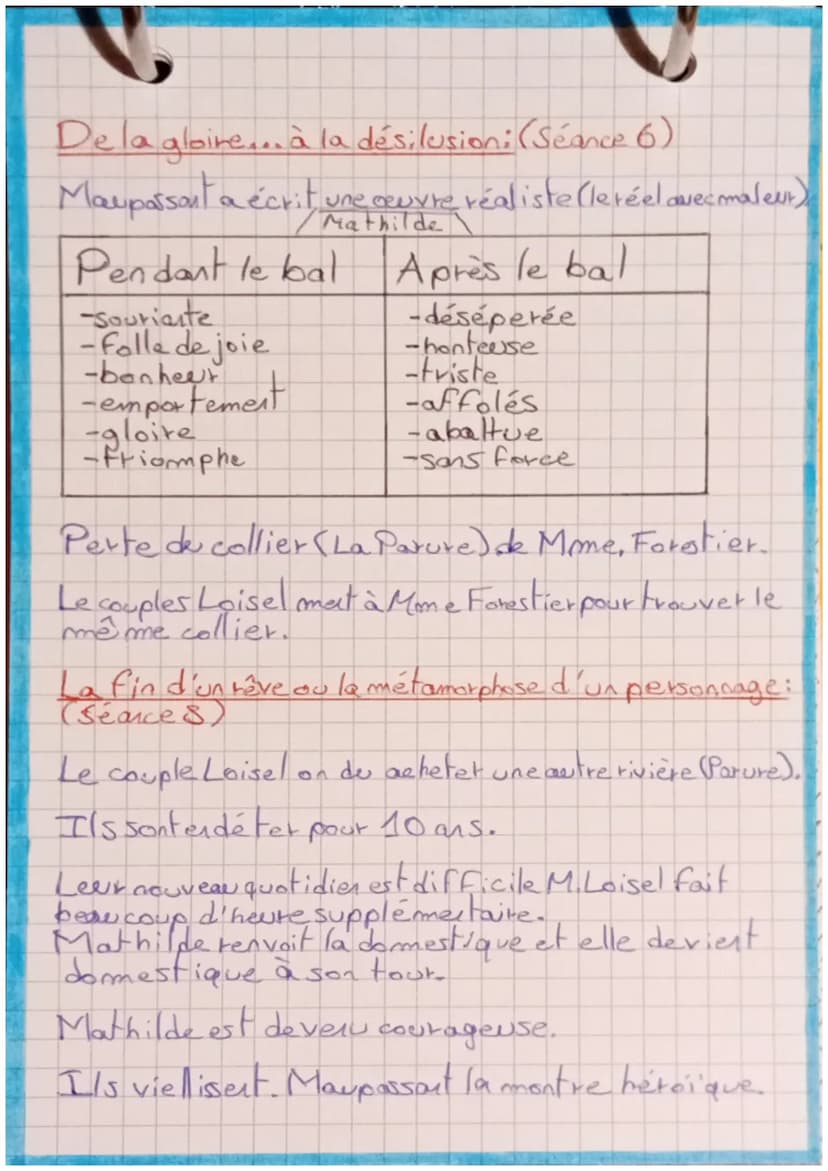 De la gloire... à la désilusion: (Séance 6)
Maupassant a écrit une œuvre réaliste (le réel avec maleur)
Mathilde
Pendant le bal
Après le bal
-souriante
-folle de joie
-bonheur
-emportement
-gloire
-triomphe
-déséperée
-honteuse
-triste
-affolés
-abattue
-sans force
Perte de collier (La Parure) de Mme, Forestier.
Le couples Loisel ment à Mme Forestier pour trouver le
même collier.
La fin d'un rêve ou la métamorphose d'un personnage:
(Séance 8)
Le couple Loisel on du acheter une autre rivière (Parure).
Ils sont endéter pour 10 ans.
Leur nouveau quotidien est difficile M. Loisel fait
beaucoup d'heure supplémentaire.
Mathilde renvoit la domestique et elle devient
domestique à son tour.
Mathilde est devenu courageuse.
Ils viellisent. Maupassant la montre héroïque.